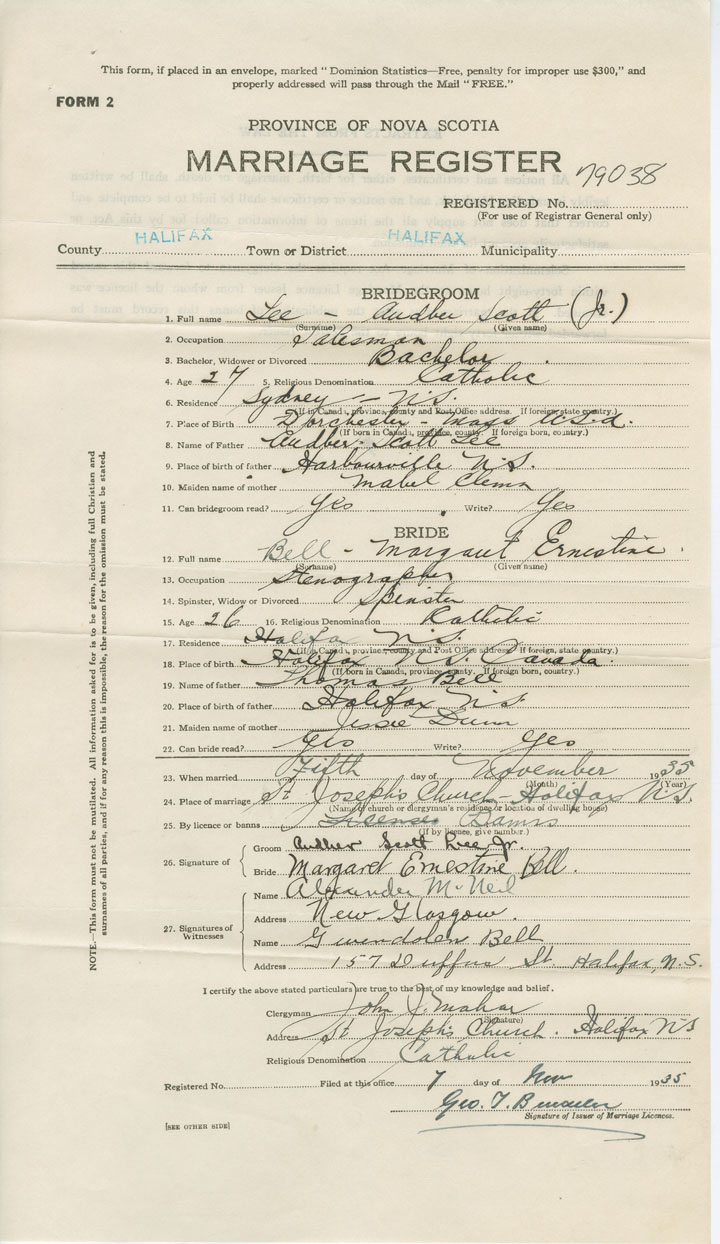 This form, if placed in an envelope, marked "Dominion Statistics—Free, penalty for improper use $300," and
properly addressed will pass through the Mail "FREE."
FORM 2
PROVINCE OF NOVA SCOTIA
MARRIAGE REGISTER
79038
REGISTERED No.
(For use of Registrar General only)
County HALIFAX Town or District HALIFAX Municipality
BRIDEGROOM
1. Full name Lee - Audber Scott (Jr.)
(Surname) (Given name)
2. Occupation Salesman
3. Bachelor, Widower or Divorced Bachelor
4. Age 27 5. Religious Denomination Catholic
6. Residence Sydney - N.S.
(If in Canada, province, county and Post Office address. If foreign, state country.)
7. Place of Birth Dorchester - Mass U.S.A.
(If born in Canada, province, county. If foreign born, country.)
8. Name of Father Audber Scott Lee
9. Place of birth of father Harbourville N.S.
10. Maiden name of mother Mabel
11. Can bridegroom read? Yes Write? Yes
BRIDE
12. Full name Bell - Margaret Ernestine
(Surname) (Given name)
13. Occupation Stenographer
14. Spinster, Widow or Divorced Spinster
15. Age 26 16. Religious Denomination Katholic
17. Residence Halifax N.S.
(If in Canada, province, county and Post Office address. If foreign, state country.)
18. Place of birth Halifax N.S. Canada.
(If born in Canada, province, county. If foreign born, country.)
19. Name of father Thomas Bell
20. Place of birth of father Halifax N.S.
21. Maiden name of mother Jessie Dunn
22. Can bride read? Yes Write? Yes
23. When married Fifth day of November 1935
(Month) (Year)
24. Place of marriage St Joseph's Church - Halifax N.S.
(Name of church or clergyman's residence or location of dwelling house)
25. By licence or banns License Banns
(If by licence, give number.)
26. Signature of
Groom Audber Scott Lee Jr.
Bride Margaret Ernestine Bell.
27. Signatures of Witnesses
Name Alexander McNeil
Address New Glasgow.
Name Gwendolen Bell
Address 157 Duffus St. Halifax, N.S.
I certify the above stated particulars are true to the best of my knowledge and belief.
Clergyman John J. Mahar
(Signature)
Address St Joseph's Church. Halifax N.S
Religious Denomination Catholic
Registered No. Filed at this office 7 day of Nov 1935
Geo. T.
Signature of Issuer of Marriage Licences.
[SEE OTHER SIDE]
NOTE.—This form must not be mutilated. All information asked for is to be given, including full Christian and
surnames of all parties, and if for any reason this is impossible, the reason for the omission must be stated.